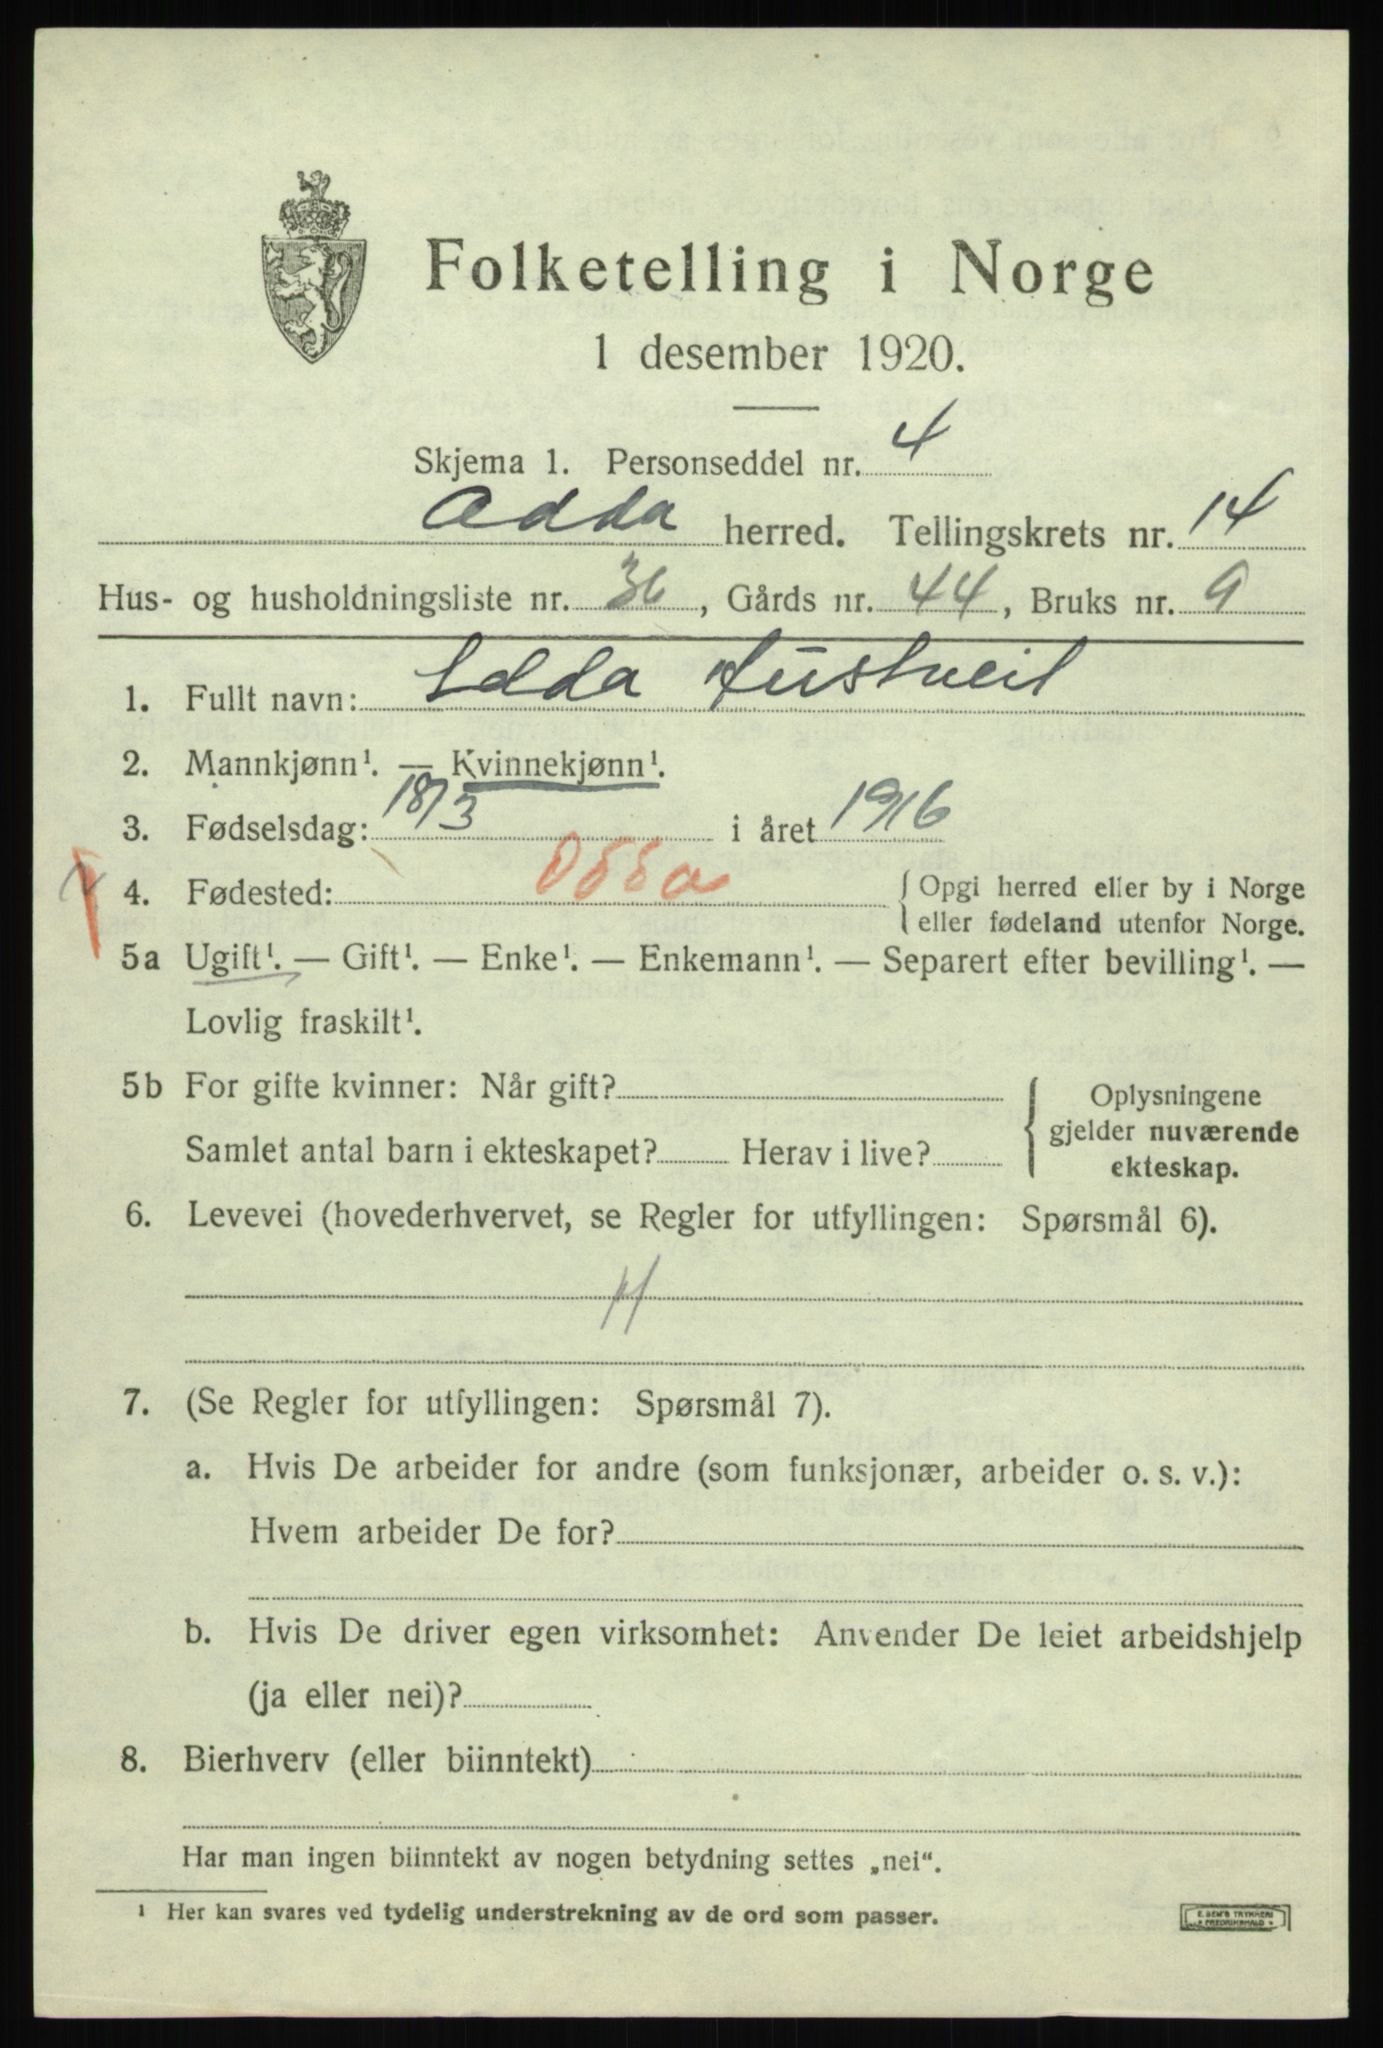 Folketelling i Norge
1 desember 1920.
Skjema 1. Personseddel nr. 4
Odda herred. Tellingskrets nr. 14
Hus- og husholdningsliste nr. 36, Gårds nr. 44, Bruks nr. 9
1. Fullt navn: Edda
2. Mannkjønn¹. — Kvinnekjønn¹.
3. Fødselsdag: 18/3 i året 1916
4. Fødested: Odda { Opgi herred eller by i Norge
eller fødeland utenfor Norge.
5a Ugift¹. — Gift¹. — Enke¹. — Enkemann¹. — Separert efter bevilling¹. —
Lovlig fraskilt¹.
5b For gifte kvinner: Når gift?
Samlet antal barn i ekteskapet? Herav i live?
{ Oplysningene
gjelder nuværende
ekteskap.
6. Levevei (hovederhvervet, se Regler for utfyllingen: Spørsmål 6).
7. (Se Regler for utfyllingen: Spørsmål 7).
a. Hvis De arbeider for andre (som funksjonær, arbeider o. s. v.):
Hvem arbeider De for?
b. Hvis De driver egen virksomhet: Anvender De leiet arbeidshjelp
(ja eller nei)?
8. Bierhverv (eller biinntekt)
Har man ingen biinntekt av nogen betydning settes „nei“.
¹ Her kan svares ved tydelig understrekning av de ord som passer.
E. SEM'S TRYKKERI
FREDRIKSHALD